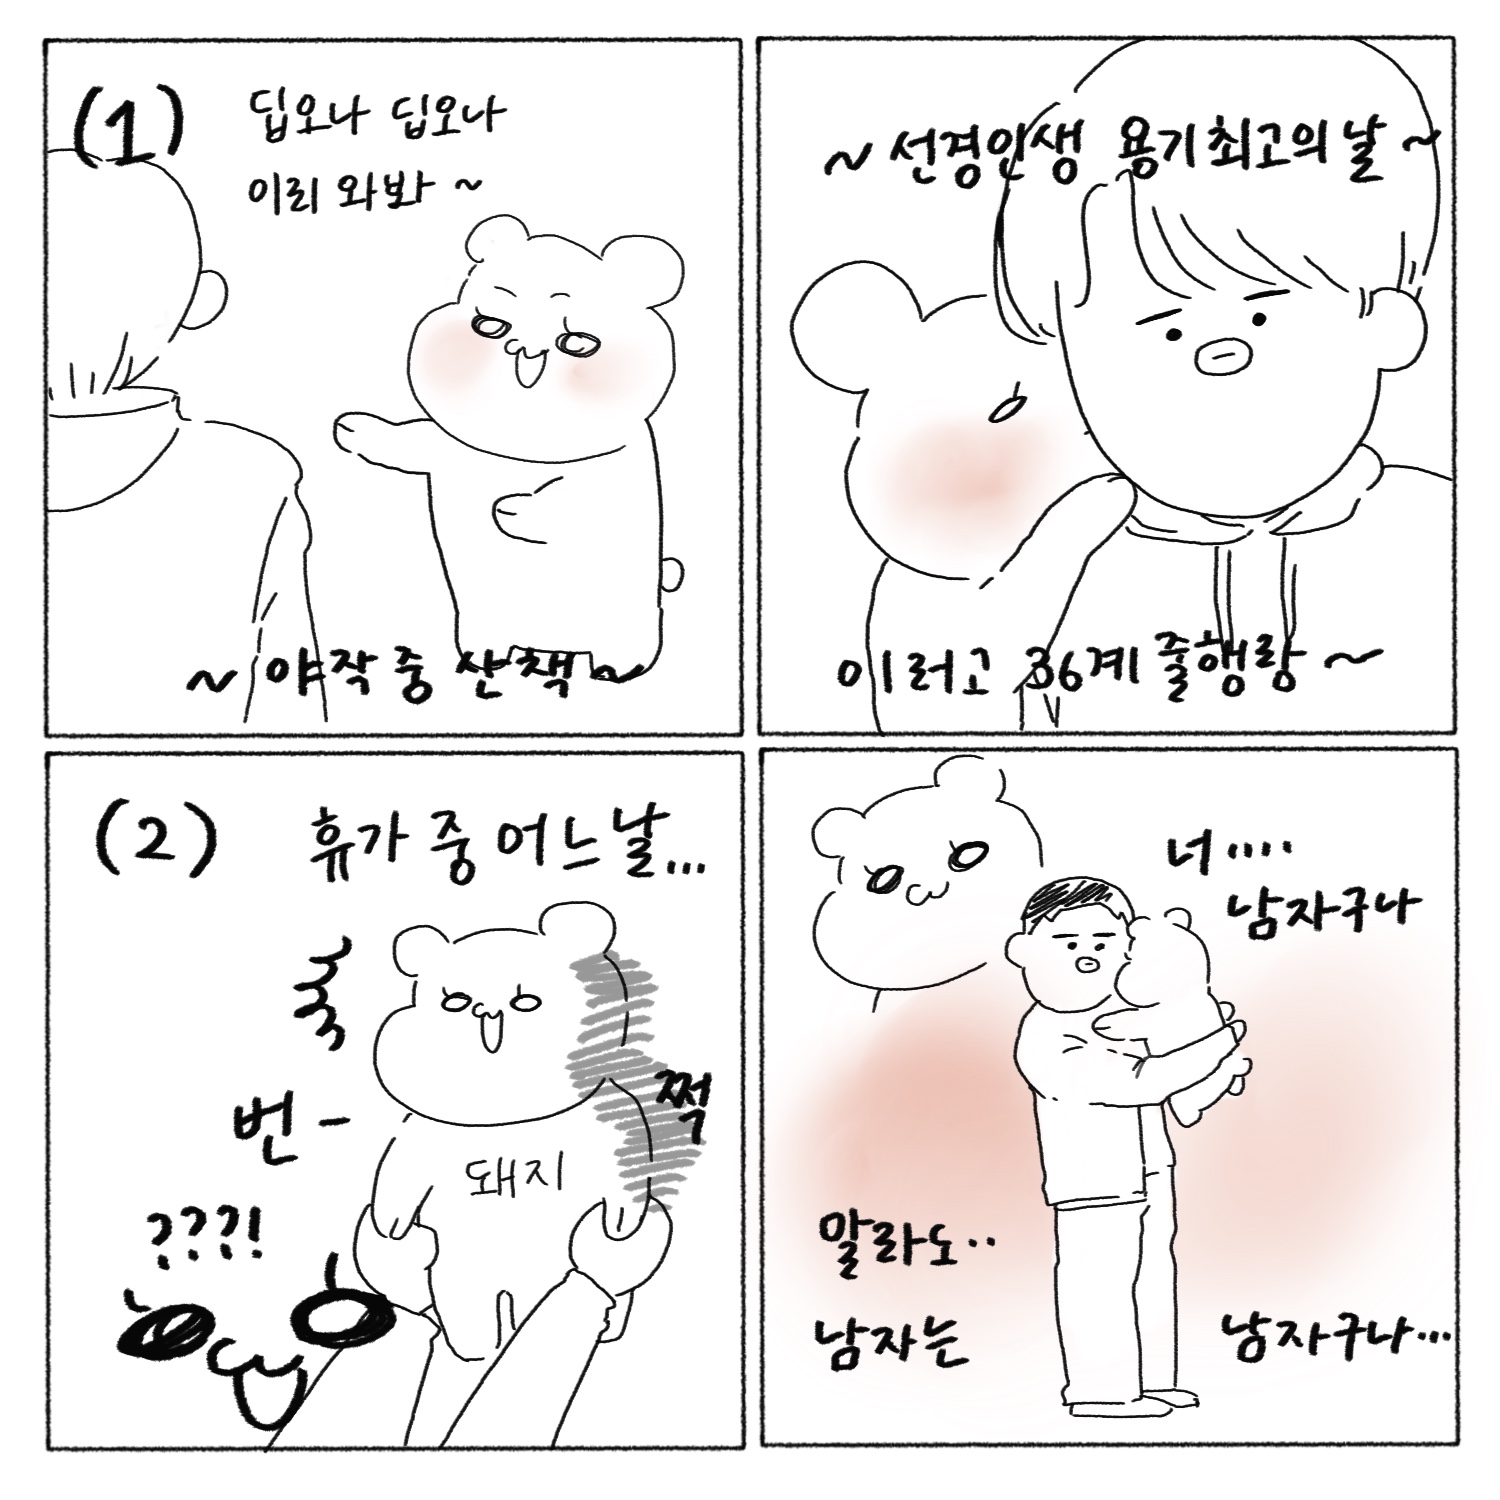 (1)
딥오나 딥오나
이리 와봐 ~
~ 야작 중 산책 ~
~ 선경인생 용기최고의 날 ~
이러고 36계 줄행랑 ~
(2)
휴가 중 어느날...
번 -
쩍
돼지
???!
너....
남자구나
말라도..
남자는
남자구나...